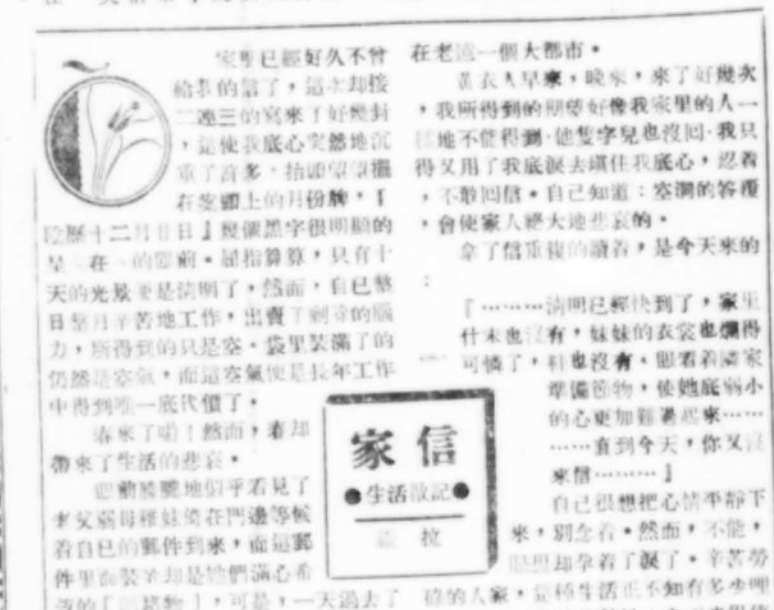 家里已經好久不曾
給我的信了，這次却接
二連三的寫來了好幾封
，這使我底心突然地沉
重了許多，抬頭望望擺
在壁頭上的月份牌，『
陰歷十二月廿日』幾個黑字很明顯的
呈在的眼前。屈指算算，只有十
天的光景便是清明了，然而，自已整
日整月辛苦地工作，出賣了剩余的腦
力，所得到的只是空。袋里裝滿了的
仍然是空氣，而這空氣便是長年工作
中得到唯一底代價了。
春來了啲！然而，春却
帶來了生活的悲哀。
眼前朦朧地似乎若見了
老父弱母稚妹倚在門邊等候
着自已的郵件到來，而這郵
件里面裝着却是她們滿心希
望的「」，可是，一天過去了
家信
●生活散記●
拉
在老遠一個大都市。
黃衣人早來，晚來，來了好幾次
，我所得到的期望好像我家里的人一
地不能得到·他隻字兒也沒回·我只
得又用了我底淚去瞞住我底心，忍着
，不敢回信。自己知道：空洞的答覆
，會使家人絕大地悲哀的。
拿了信重複的讀着，是今天來的
：
『………清明已經快到了，家里
什末也沒有，妹妹的衣裳也爛得
可憐了，鞋也沒有。眼看着隣家
準備節物，使她底弱小
的心更加難過起來……
……直到今天，你又沒
來信………』
自己很想把心情平靜下
來，別念着。然而，不能，
眼里却孕着了淚了。辛苦勞
碌的人家，這種生活正不知有多少哩